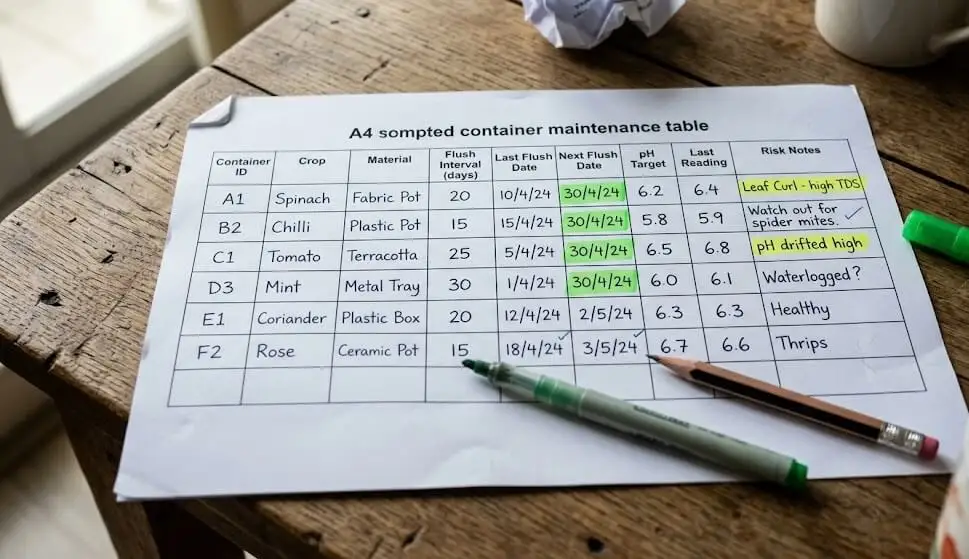 A4 sompted container maintenance table
Container ID Crop Material Flush Interval (days) Last Flush Date Next Flush Date pH Target Last Reading Risk Notes
A1 Spinach Fabric Pot 20 10/4/24 30/4/24 6.2 6.4 Leaf Curl - high TDS
B2 Chilli Plastic Pot 15 15/4/24 30/4/24 5.8 5.9 Watch out for spider mites. ✓
C1 Tomato Terracotta 25 5/4/24 30/4/24 6.5 6.8 pH drifted high
D3 Mint Metal Tray 30 1/4/24 30/4/24 6.0 6.1 Waterlogged?
E1 Coriander Plastic Box 20 12/4/24 2/5/24 6.3 6.3 Healthy
F2 Rose Ceramic Pot 15 18/4/24 ✓ 3/5/24 ✓ 6.7 6.6 Thrips